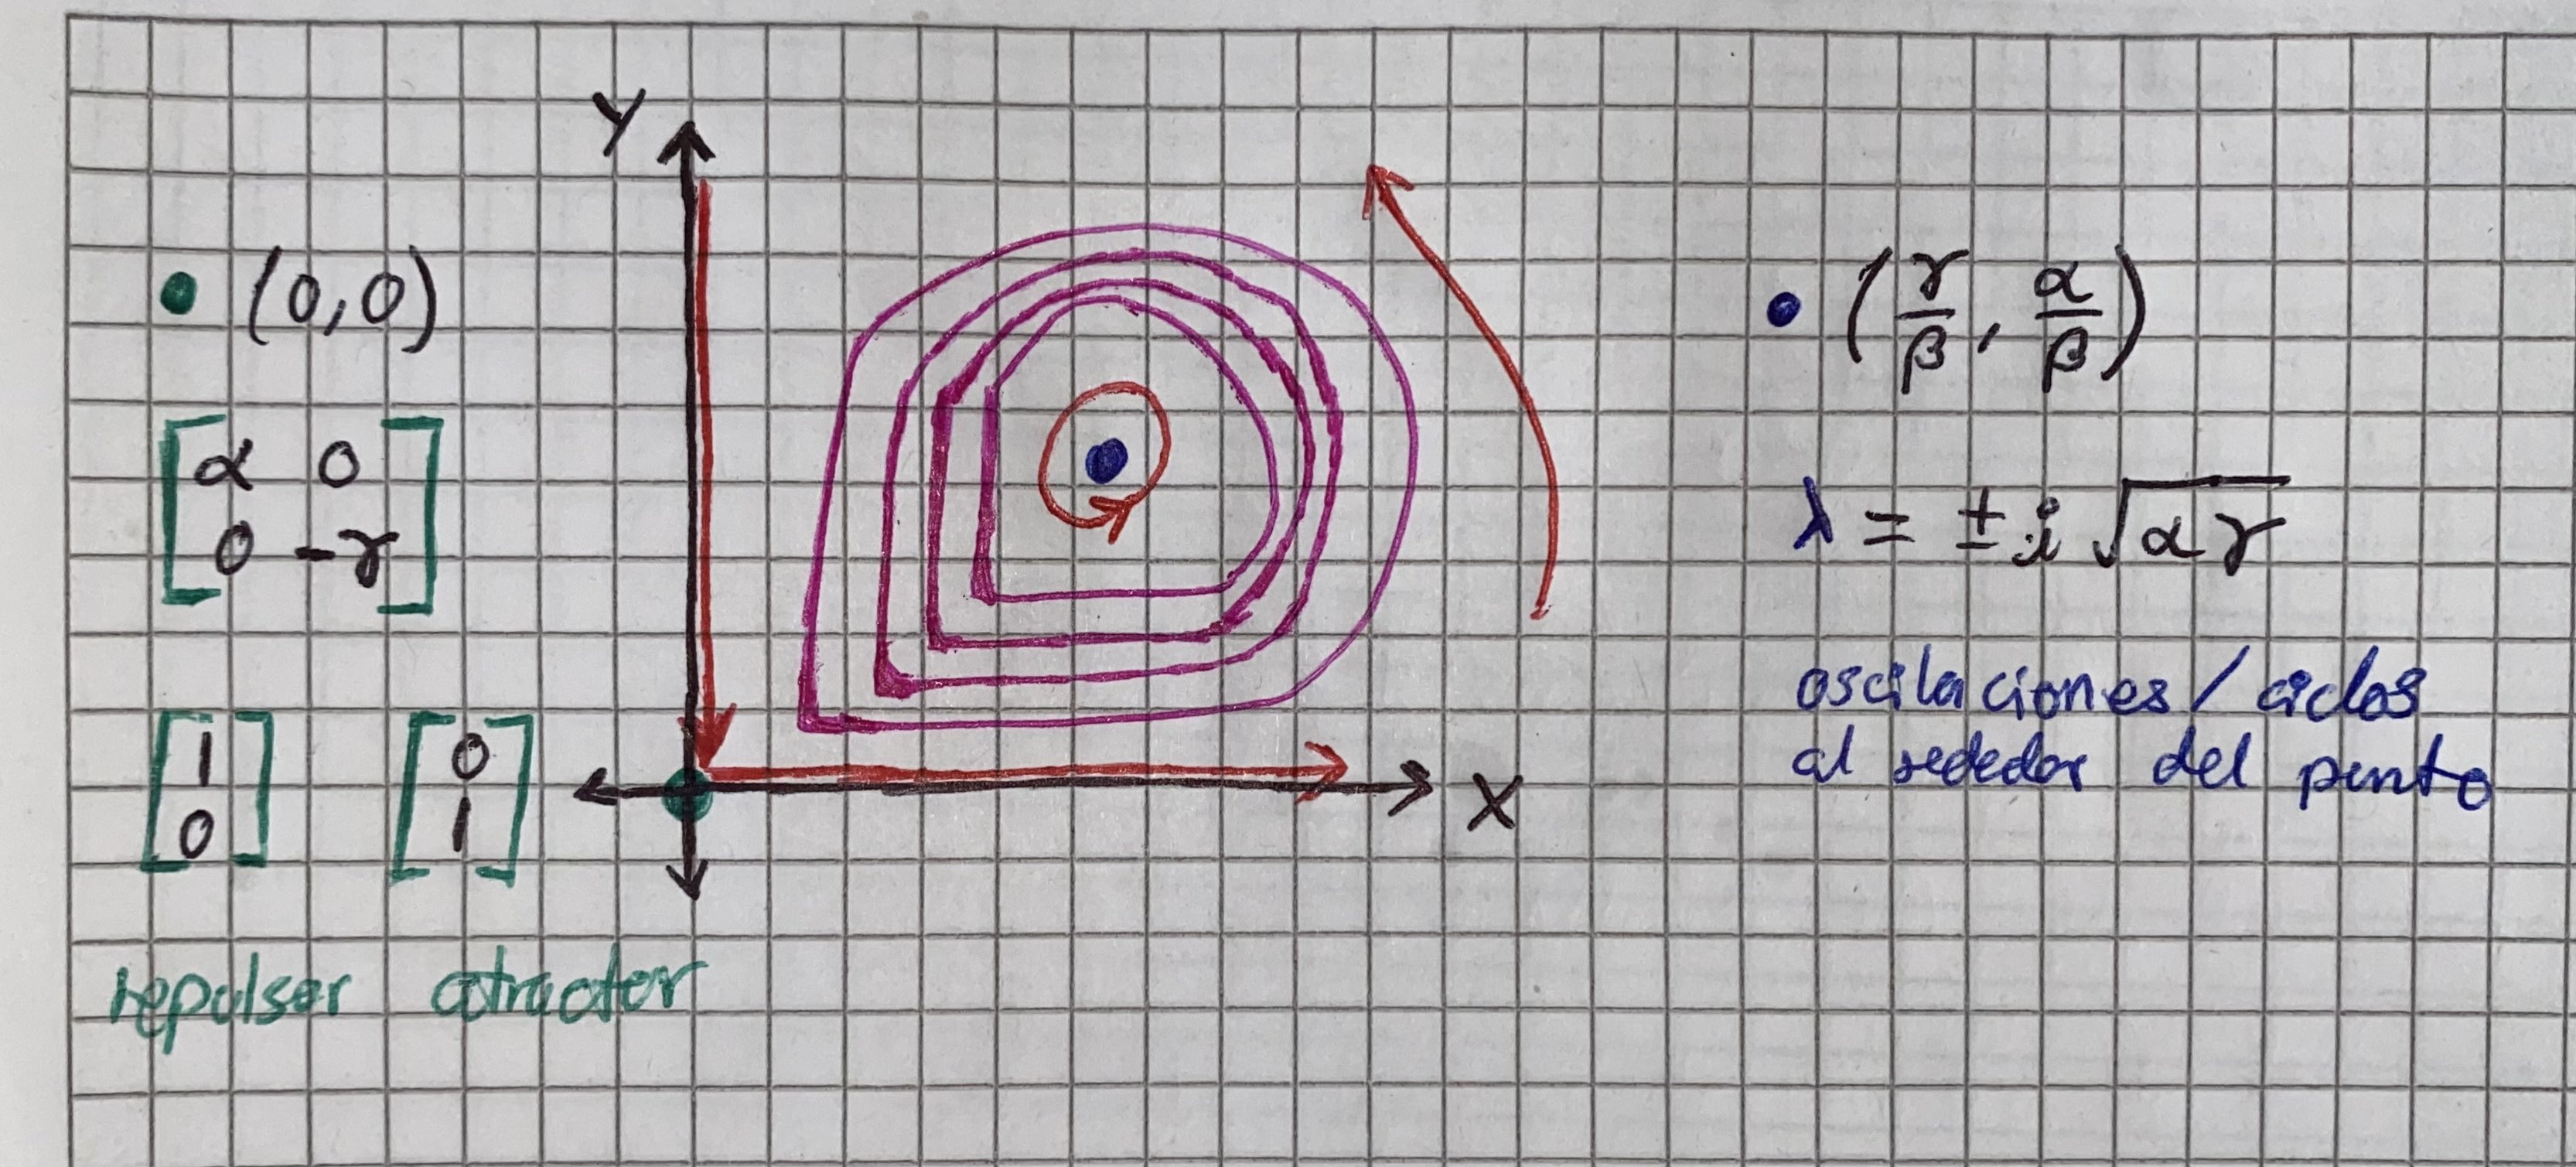 • (0,0)
[α 0
0 -γ]
[1
0]
[0
1]
repulsor atractor
Y
X
• (γ/β, α/β)
λ = ± i √αγ
oscilaciones / ciclos
al rededor del punto